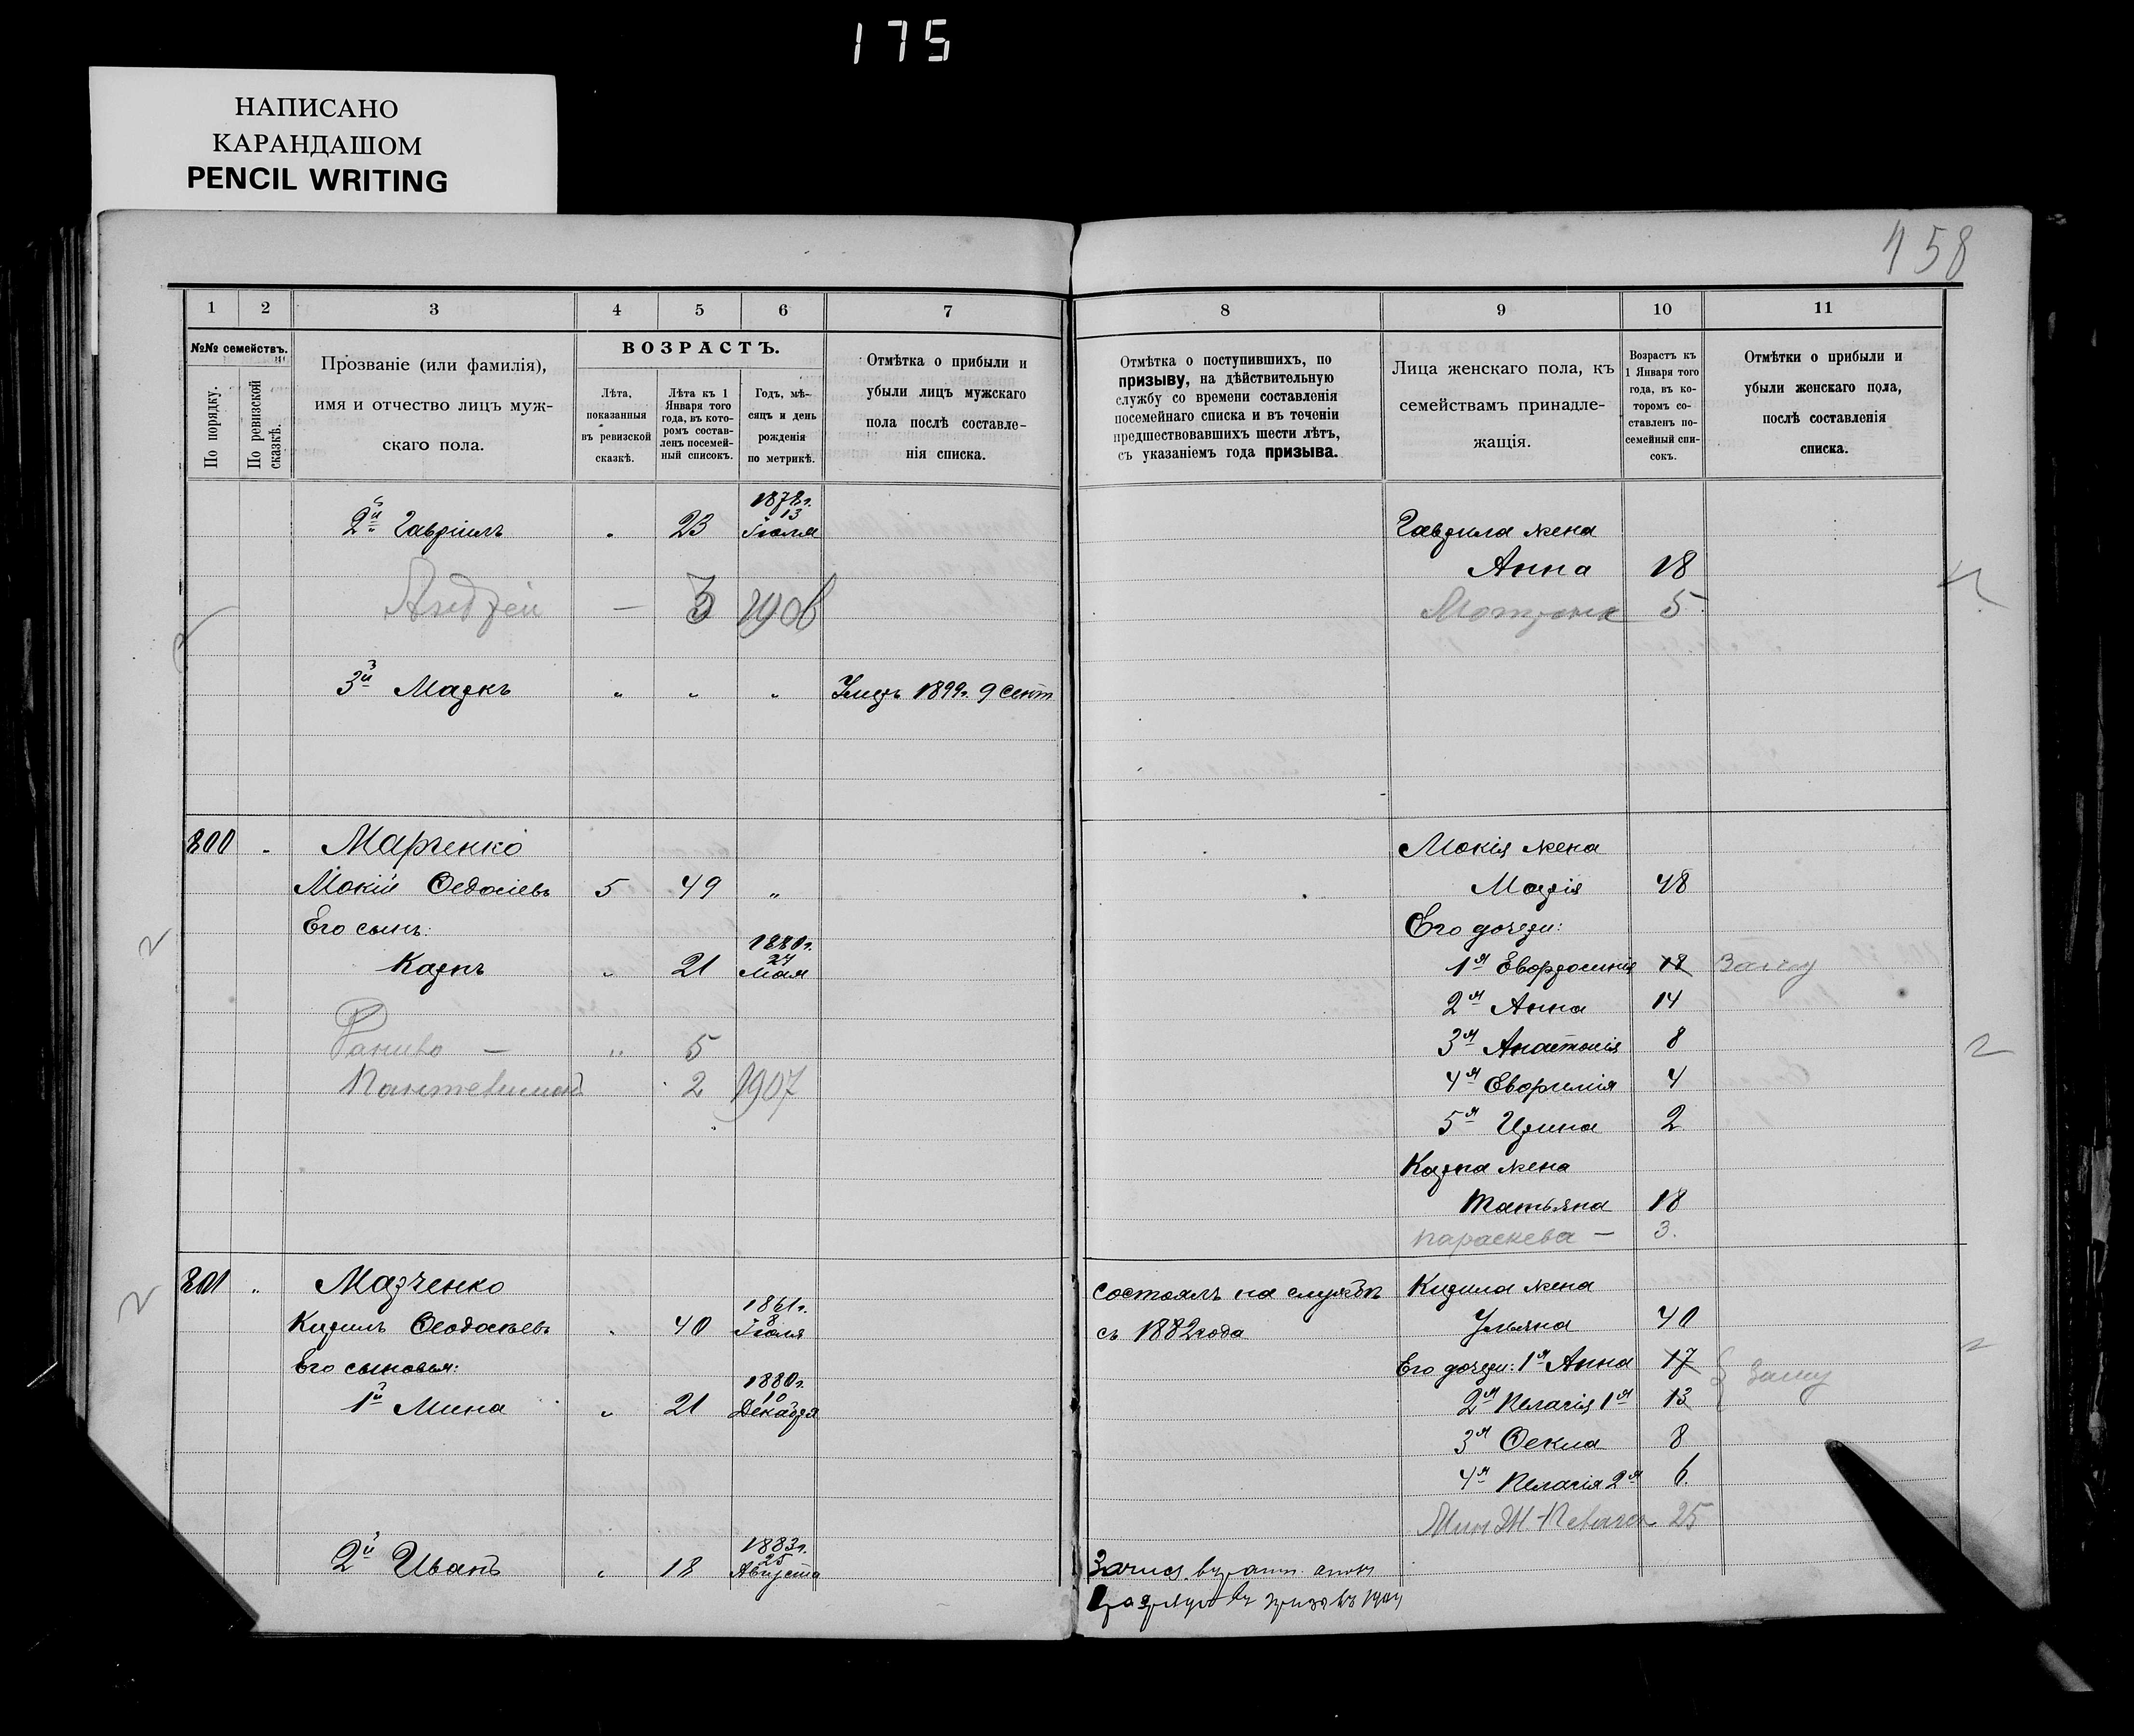 175
НАПИСАНО
КАРАНДАШОМ
PENCIL WRITING
158
1 2 3 4 5 6 7
№№ семействъ.
По порядку.
По ревизской сказкѣ.
Прозваніе (или фамилія),
имя и отчество лицъ муж-
скаго пола.
ВОЗРАСТЪ.
Лѣта,
показанныя
въ ревизской
сказкѣ.
Лѣта къ 1
Января того
года, въ кото-
ромъ состав-
ленъ посемей-
ный списокъ.
Годъ, мѣ-
сяцъ и день
рожденія
по метрикѣ.
Отмѣтка о прибыли и
убыли лицъ мужскаго
пола послѣ составле-
нія списка.
1878г.
13
2й Гавріилъ " 23 Іюля
Андрей — 3 1906
3й Маркъ " " " Умеръ 1899г. 9 Сент
800 " Марченко
Мокій Федосіевъ 5 49 "
Его сынъ:
1880г.
24
Карпъ " 21 Мая
5
2 1907
801 " Марченко
1861г.
8
Кирилъ Феодосіевъ " 40 Іюля
Его сыновья:
1880г.
10
1й Мина " 21 Декабря
1883г.
25
2й Иванъ " 18 Августа
8 9 10 11
Отмѣтка о поступившихъ, по
призыву, на дѣйствительную
службу со времени составленія
посемейнаго списка и въ теченіи
предшествовавшихъ шести лѣтъ,
съ указаніемъ года призыва.
Лица женскаго пола, къ
семействамъ принадле-
жащія.
Возрастъ къ
1 Января того
года, въ ко-
торомъ со-
ставленъ по-
семейный спи-
сокъ.
Отмѣтки о прибыли и
убыли женскаго пола,
послѣ составленія
списка.
Гаврила жена
Анна 18
Мотрона 5
Мокія жена
Марія 48
Его дочери:
1я Евфросинія 18 Замуж
2я Анна 14
3я Анастасія 8
4я Евфимія 4
5я Ирина 2
Карпа жена
Татьяна 18
Параскева — 3.
Состоялъ на службѣ Кирила жена
съ 1882 года Ульяна 40
Его дочери: 1я Анна 17
2я Пелагія 1я 13 Замуж
3я Фекла 8
4я Пелагія 2я 6
25